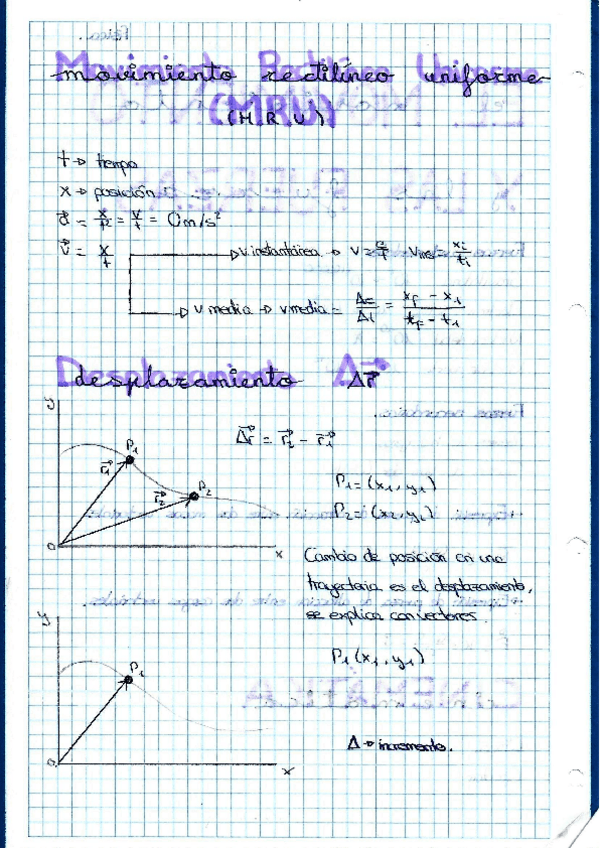 movimiento rectilíneo uniforme
(M R U)
t → tiempo
x → posición
a⃗ = x/t² = v/t = 0 m/s²
v⃗ = x/t
→ v instantánea → v = e/t   Vins = xi/ti
→ v media → v media = Δe/Δt = (xf - x1)/(tf - t1)
desplazamiento Δr⃗
y
P1
r⃗1
r⃗2
P2
0
x
Δr⃗ = r⃗2 - r⃗1
P1 = (x1, y1)
P2 = (x2, y2)
Cambio de posición en una
trayectoria es el desplazamiento,
se explica con vectores.
y
P1
0
x
P1 (x1, y1)
Δ → incremento.